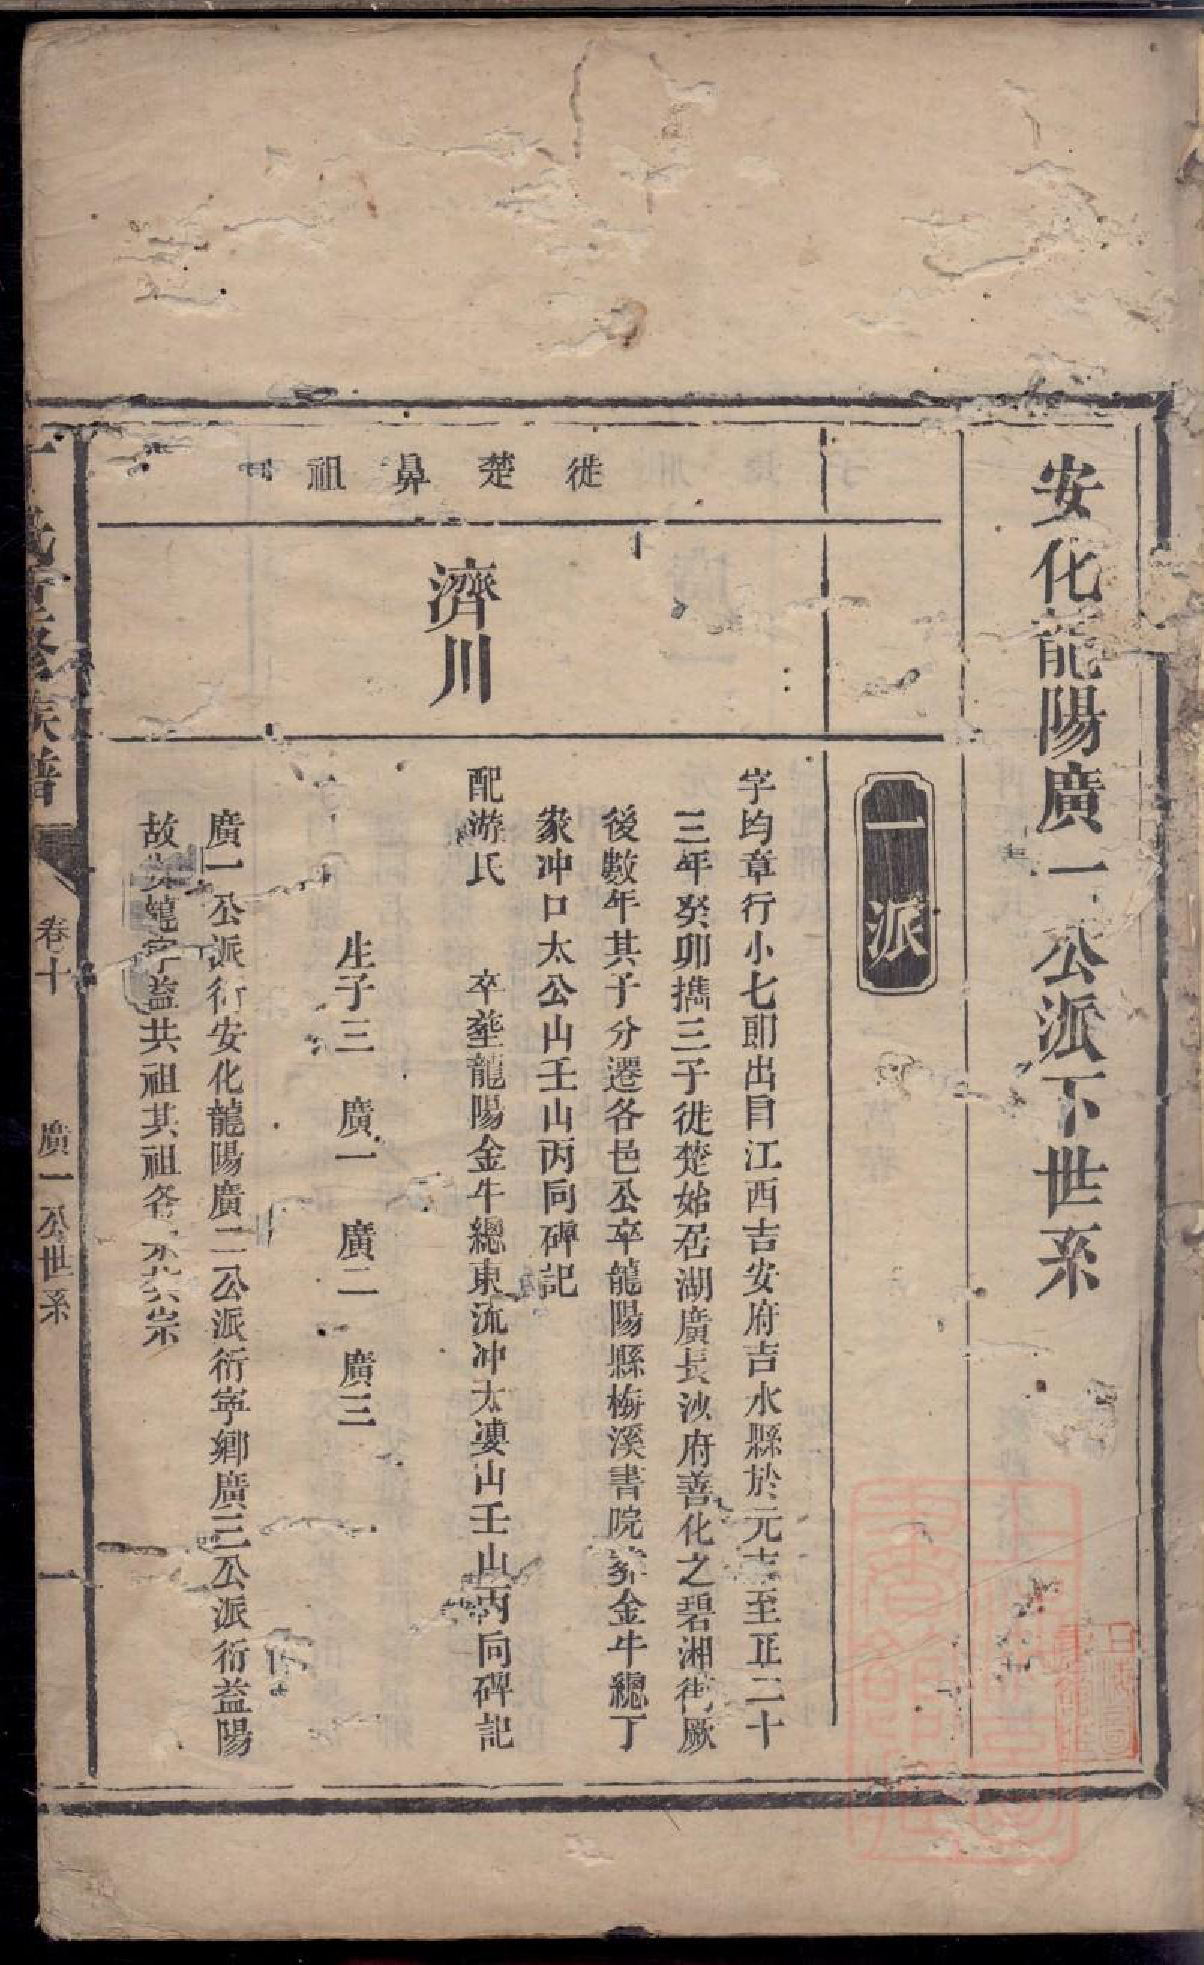 安化龍陽廣一公派下世系
一派
徙楚鼻祖
濟川
字均章行小七郎出自江西吉安府吉水縣於元末至正二十
三年癸卯攜三子徙楚始居湖廣長沙府善化之碧湘街厥
後數年其子分遷各邑公卒龍陽縣梅溪書院葬金牛總丁
家冲口太公山壬山丙向碑記
配游氏 卒塟龍陽金牛總東流冲太婆山壬山丙向碑記
生子三 廣一 廣二 廣三
廣一公派衍安化龍陽廣二公派衍寧鄉廣三公派衍益陽
故安龍寧益共祖其祖各宗其宗
族譜
卷十
廣一公世系
一